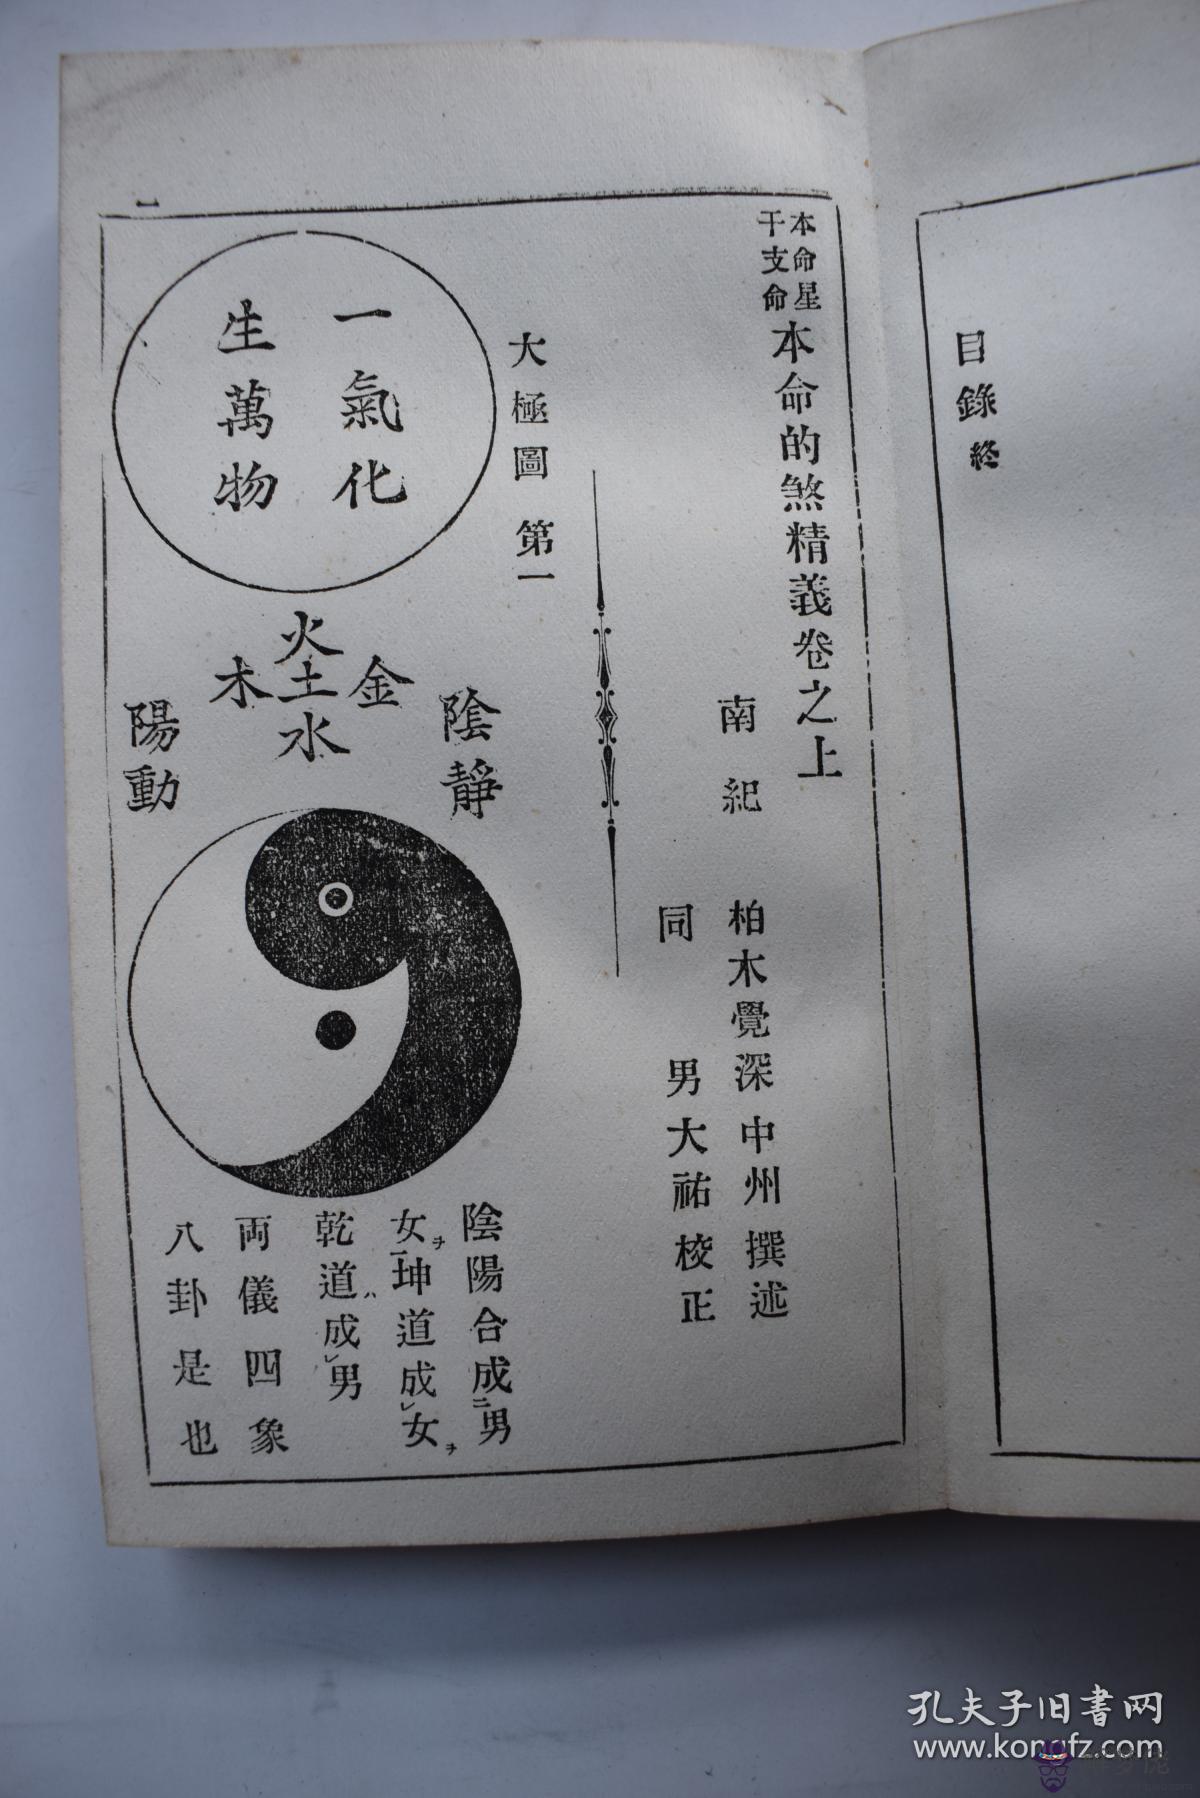 目錄終
本命星
干支命
本命的煞精義卷之上
南紀 柏木覺深中州撰述
同 男大祐校正
大極圖 第一
一氣化
生萬物
火
金
土
木
水
陰靜
陽動
陰陽合成ニ男
女ヲ一坤道成レ女ヲ
乾道ハ成レ男
両儀四象
八卦是也
一
孔夫子旧書网
www.kongfz.com